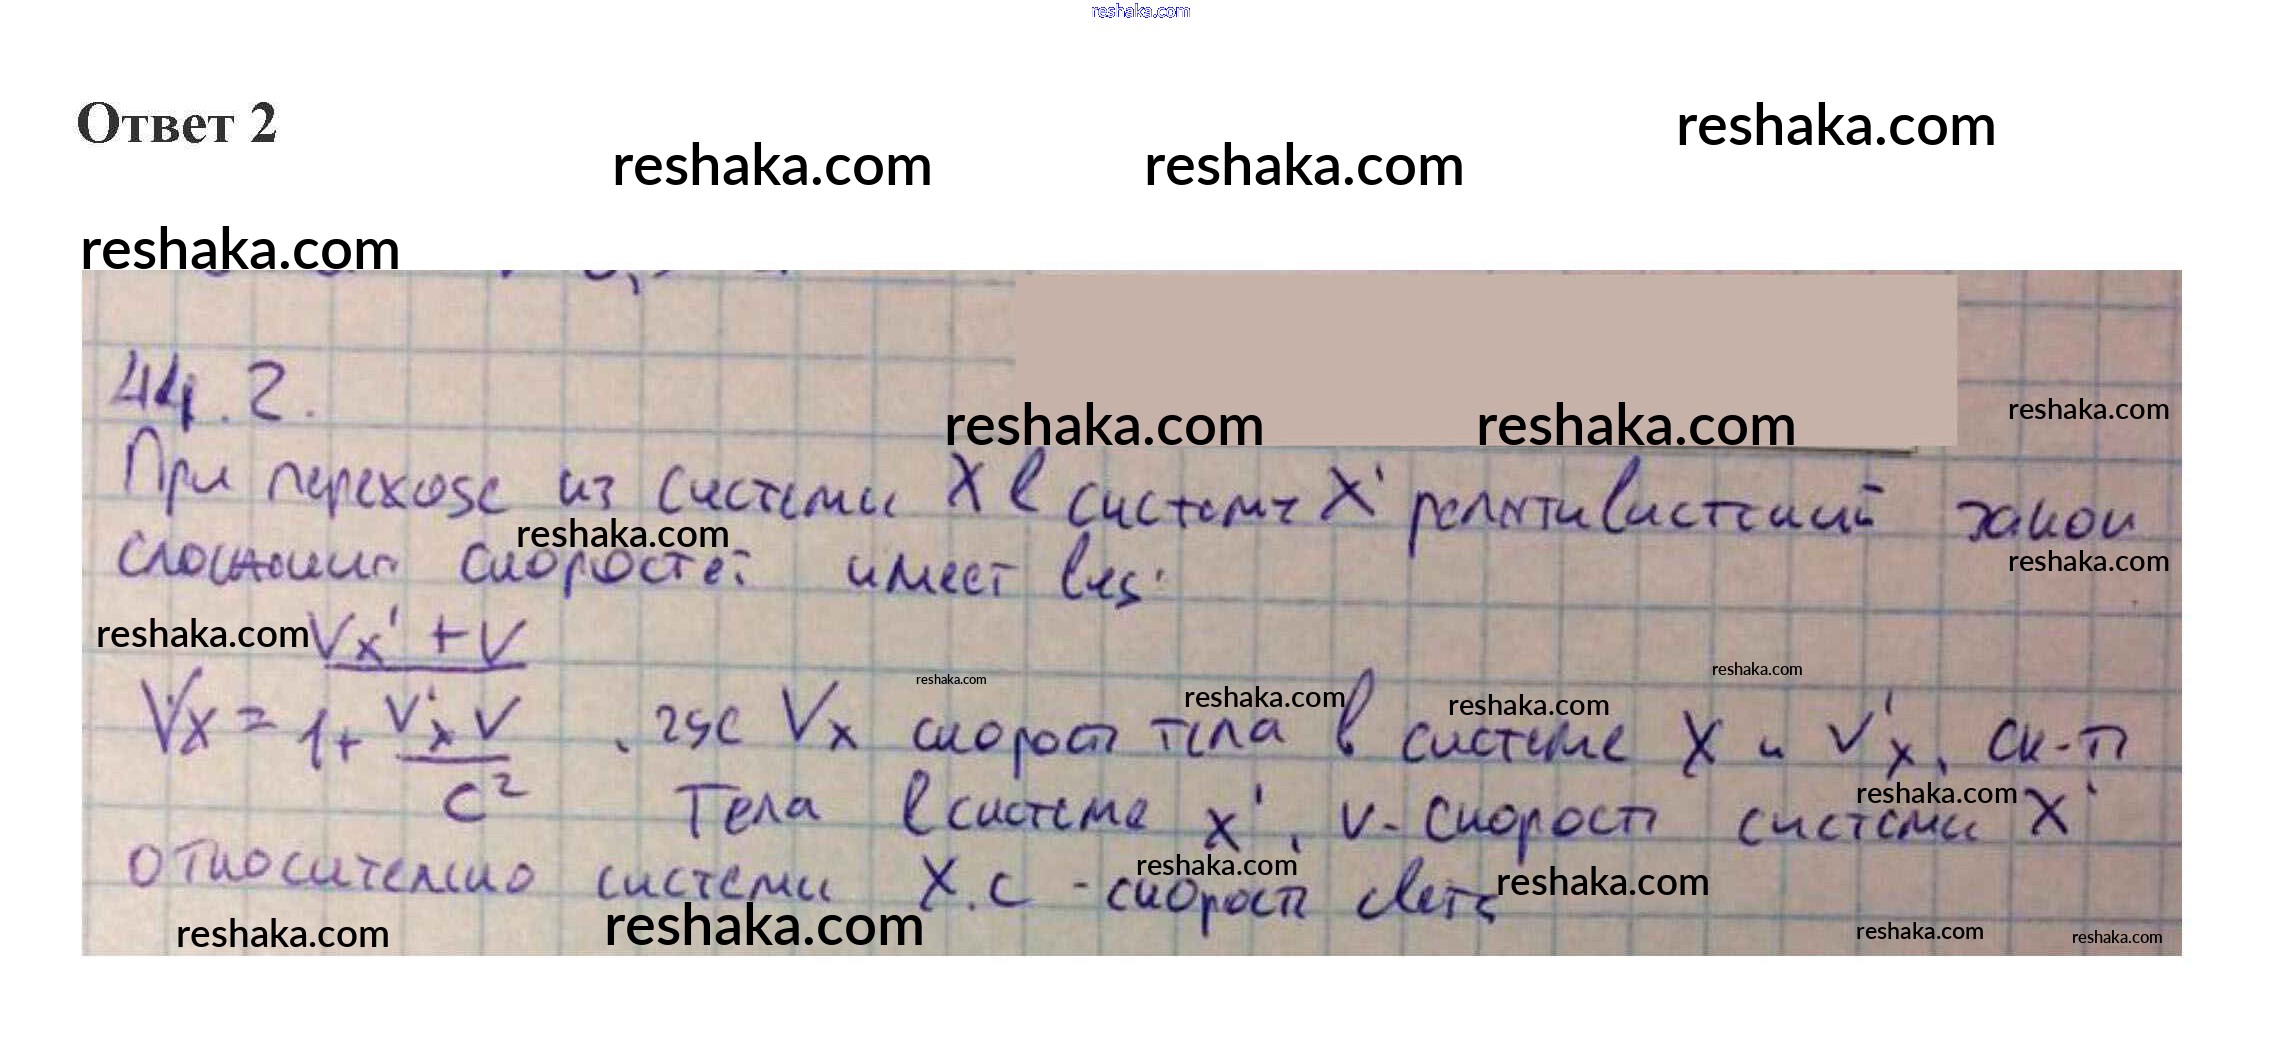 reshaka.com
Ответ 2
reshaka.com
reshaka.com reshaka.com
reshaka.com
44.2.
reshaka.com reshaka.com reshaka.com
При переходе из системы X в систему X' релятивистский закон
reshaka.com
сложения скоростей имеет вид:
reshaka.com
reshaka.com Vx' + V
reshaka.com reshaka.com reshaka.com reshaka.com
Vx = 1 + V'x V , где Vx скорость тела в системе X и V'x, ск-ть
c² Тела в системе x', v - скорость системы X'
reshaka.com
относительно системы X. c - скорость света
reshaka.com reshaka.com
reshaka.com reshaka.com reshaka.com reshaka.com